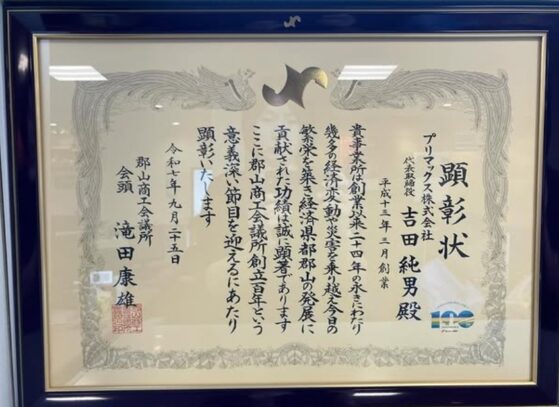 顕彰状
プリマックス株式会社
代表取締役 吉田純男殿
平成十三年三月創業
貴事業所は創業以来二十四年の永きにわたり
幾多の経済変動や災害を乗り越え今日の
繁栄を築き経済県都郡山の発展に
貢献された功績は誠に顕著であります
ここに郡山商工会議所創立百年という
意義深い節目を迎えるにあたり
顕彰いたします
令和七年九月二十五日
郡山商工会議所
会頭 滝田康雄
100